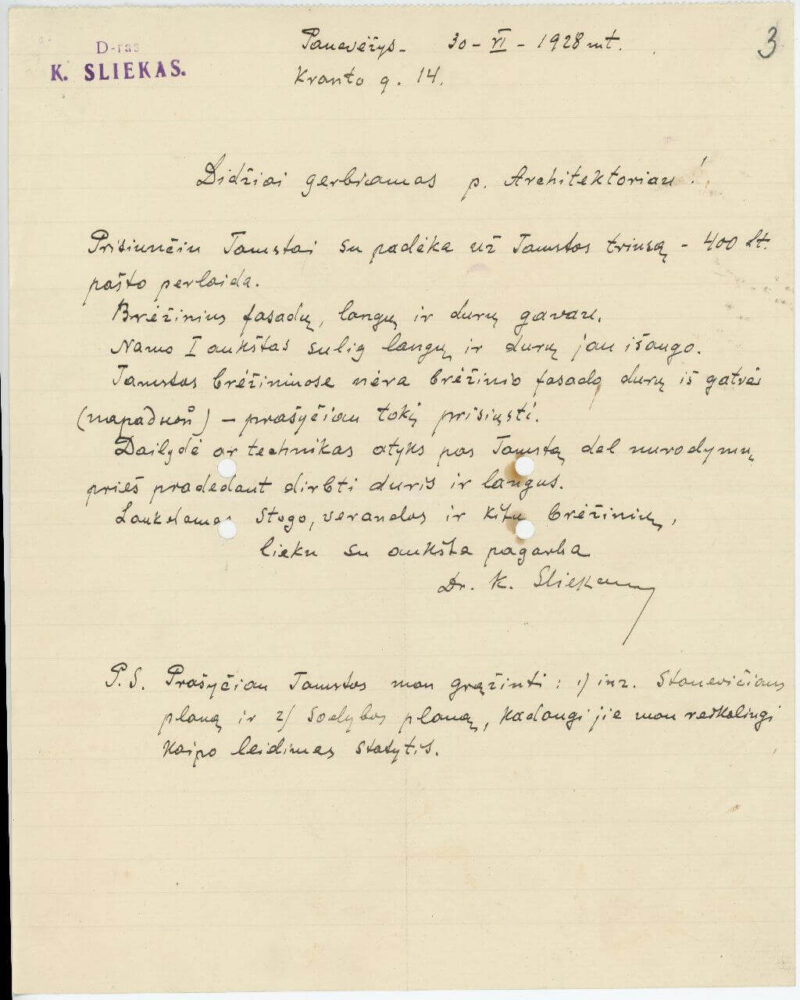 D-ras
K. SLIEKAS.
Panevėžys - 30 - VI - 1928 mt.
Kranto g. 14.
3
Didžiai gerbiamas p. Architektoriau!
Prisiunčiu Tamstai su padėka už Tamstos triusą - 400 Lt.
pašto perlaida.
Brėžinius fasadų, langų ir durų gavau.
Namo I aukštas sulig langų ir durų jau išaugo.
Tamstos brėžiniuose nėra brėžinio fasado durų iš gatvės
- prašyčiau tokį prisiųsti.
Dailydė ar technikas atyks pas Tamstą del nurodymų
prieš pradedant dirbti duris ir langus.
Laukdamas stogo, verandos ir kitų brėžinių,
lieku su aukšta pagarba
Dr. K. Sliekas
P.S. Prašyčiau Tamstos man grąžinti: 1) inž. Stanevičiaus
planą ir 2) Sodybos planą, kadangi jie man reikalingi
kaipo leidimas statytis.